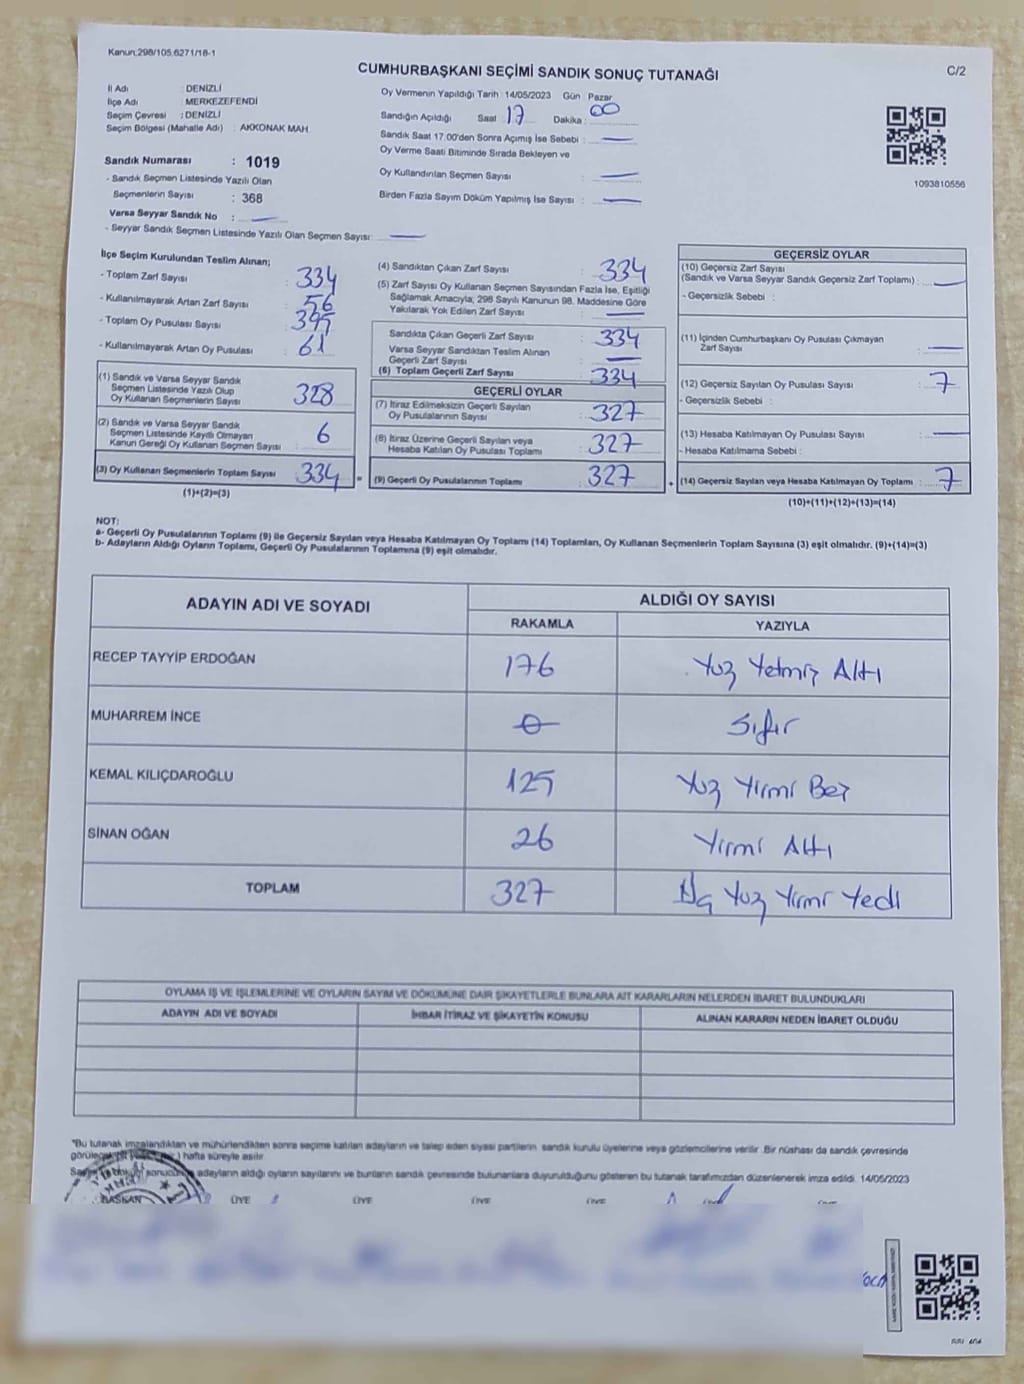 Kanun:298/105.6271/18-1
CUMHURBAŞKANI SEÇİMİ SANDIK SONUÇ TUTANAĞI
C/2
İl Adı : DENİZLİ
İlçe Adı : MERKEZEFENDİ
Seçim Çevresi : DENİZLİ
Seçim Bölgesi (Mahalle Adı) : AKKONAK MAH.
Sandık Numarası : 1019
- Sandık Seçmen Listesinde Yazılı Olan
Seçmenlerin Sayısı : 368
Varsa Seyyar Sandık No : —
- Seyyar Sandık Seçmen Listesinde Yazılı Olan Seçmen Sayısı: —
Oy Vermenin Yapıldığı Tarih : 14/05/2023 Gün : Pazar
Sandığın Açıldığı Saat : 17 Dakika : 00
Sandık Saat 17.00'den Sonra Açımış İse Sebebi : —
Oy Verme Saati Bitiminde Sırada Bekleyen ve
Oy Kullandırılan Seçmen Sayısı : —
Birden Fazla Sayım Döküm Yapılmış İse Sayısı : —
1093810556
İlçe Seçim Kurulundan Teslim Alınan;
- Toplam Zarf Sayısı : 334
- Kullanılmayarak Artan Zarf Sayısı : 56
- Toplam Oy Pusulası Sayısı :
- Kullanılmayarak Artan Oy Pusulası : 61
(1) Sandık ve Varsa Seyyar Sandık
Seçmen Listesinde Yazılı Olup
Oy Kullanan Seçmenlerin Sayısı : 328
(2) Sandık ve Varsa Seyyar Sandık
Seçmen Listesinde Kayıtlı Olmayan
Kanun Gereği Oy Kullanan Seçmen Sayısı : 6
(3) Oy Kullanan Seçmenlerin Toplam Sayısı : 334
(1)+(2)=(3)
(4) Sandıktan Çıkan Zarf Sayısı : 334
(5) Zarf Sayısı Oy Kullanan Seçmen Sayısından Fazla İse, Eşitliği
Sağlamak Amacıyla; 298 Sayılı Kanunun 98. Maddesine Göre
Yakılarak Yok Edilen Zarf Sayısı : —
Sandıkta Çıkan Geçerli Zarf Sayısı : 334
Varsa Seyyar Sandıktan Teslim Alınan
Geçerli Zarf Sayısı : —
(6) Toplam Geçerli Zarf Sayısı : 334
GEÇERLİ OYLAR
(7) İtiraz Edilmeksizin Geçerli Sayılan
Oy Pusulalarının Sayısı : 327
(8) İtiraz Üzerine Geçerli Sayılan veya
Hesaba Katılan Oy Pusulası Toplamı : 327
= (9) Geçerli Oy Pusulalarının Toplamı : 327
GEÇERSİZ OYLAR
(10) Geçersiz Zarf Sayısı
(Sandık ve Varsa Seyyar Sandık Geçersiz Zarf Toplamı) : —
- Geçersizlik Sebebi :
(11) İçinden Cumhurbaşkanı Oy Pusulası Çıkmayan
Zarf Sayısı : —
(12) Geçersiz Sayılan Oy Pusulası Sayısı : 7
- Geçersizlik Sebebi :
(13) Hesaba Katılmayan Oy Pusulası Sayısı : —
- Hesaba Katılmama Sebebi :
+ (14) Geçersiz Sayılan veya Hesaba Katılmayan Oy Toplamı : 7
(10)+(11)+(12)+(13)=(14)
NOT:
a- Geçerli Oy Pusulalarının Toplamı (9) ile Geçersiz Sayılan veya Hesaba Katılmayan Oy Toplamı (14) Toplamları, Oy Kullanan Seçmenlerin Toplam Sayısına (3) eşit olmalıdır. (9)+(14)=(3)
b- Adayların Aldığı Oyların Toplamı, Geçerli Oy Pusulalarının Toplamına (9) eşit olmalıdır.
ADAYIN ADI VE SOYADI ALDIĞI OY SAYISI
RAKAMLA YAZIYLA
RECEP TAYYİP ERDOĞAN 176 Yüz Yetmiş Altı
MUHARREM İNCE 0 Sıfır
KEMAL KILIÇDAROĞLU 125 Yüz Yirmi Beş
SİNAN OĞAN 26 Yirmi Altı
TOPLAM 327 Üç Yüz Yirmi Yedi
OYLAMA İŞ VE İŞLEMLERİNE VE OYLARIN SAYIM VE DÖKÜMÜNE DAİR ŞİKAYETLERLE BUNLARA AİT KARARLARIN NELERDEN İBARET BULUNDUKLARI
ADAYIN ADI VE SOYADI İHBAR İTİRAZ VE ŞİKAYETİN KONUSU ALINAN KARARIN NEDEN İBARET OLDUĞU
*Bu tutanak imzalandıktan ve mühürlendikten sonra seçime katılan adayların ve talep eden siyasi partilerin sandık kurulu üyelerine veya gözlemcilerine verilir. Bir nüshası da sandık çevresinde
hafta süreyle asılır.
adayların aldığı oyların sayılarını ve bunların sandık çevresinde bulunanlara duyurulduğunu gösteren bu tutanak tarafımızdan düzenlenerek imza edildi. 14/05/2023
BAŞKAN ÜYE ÜYE ÜYE ÜYE